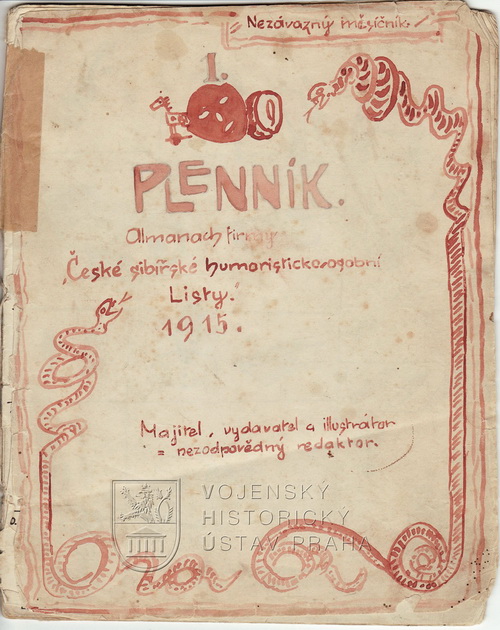 Nezávazný měsíčník.
1.
PLENNÍK.
Almanach firmy
„České sibiřské humoristicko-osobní
Listy."
1915.
Majitel, vydavatel a illustrátor
= nezodpovědný redaktor.
VOJENSKÝ
HISTORICKÝ
ÚSTAV PRAHA